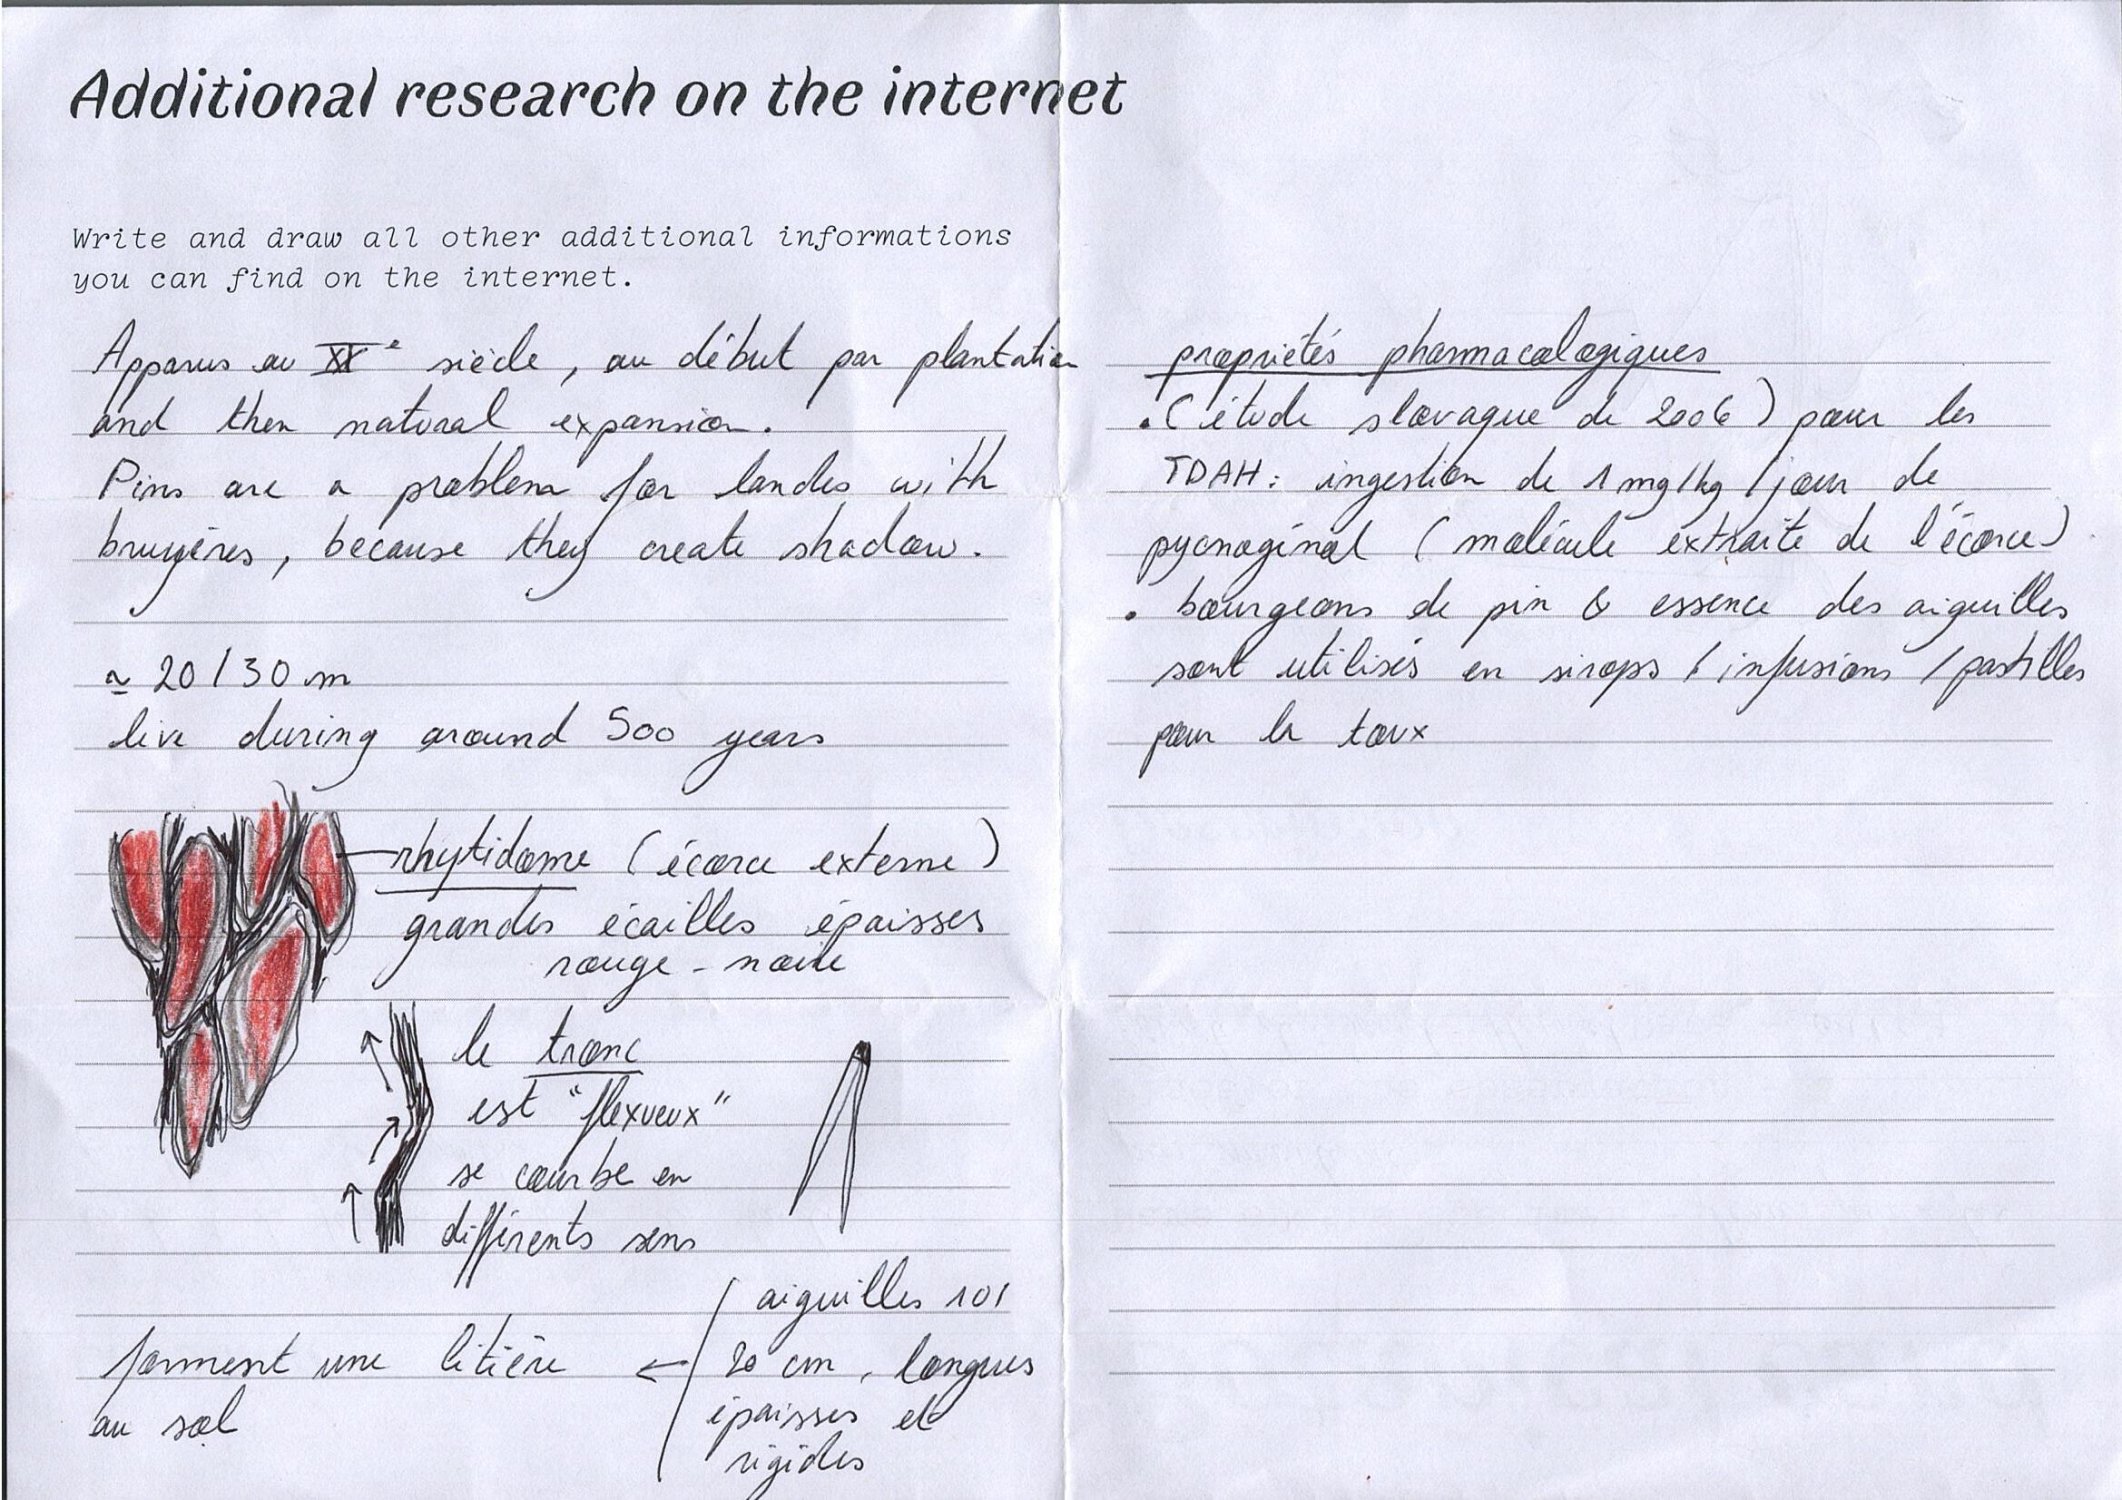 Additional research on the internet
Write and draw all other additional informations
you can find on the internet.
Apparus au XXe siècle, au début par plantation
and then natural expansion.
Pins are a problem for landes with
bruyères, because they create shadow.
≃ 20/30 m
live during around 500 years
rhytidome (écorce externe)
grandes écailles épaisses
rouge-noire
le tronc
est "flexueux"
se courbe en
différents sens
aiguilles 10/
20 cm, longues
épaisses et
rigides
← forment une litière
au sol
propriétés pharmacologiques
. (étude slovaque de 2006) pour les
TDAH: ingestion de 1 mg/kg/jour de
pycnogénol (molécule extraite de l'écorce)
. bourgeons de pin & essence des aiguilles
sont utilisés en sirops / infusions / pastilles
pour la toux